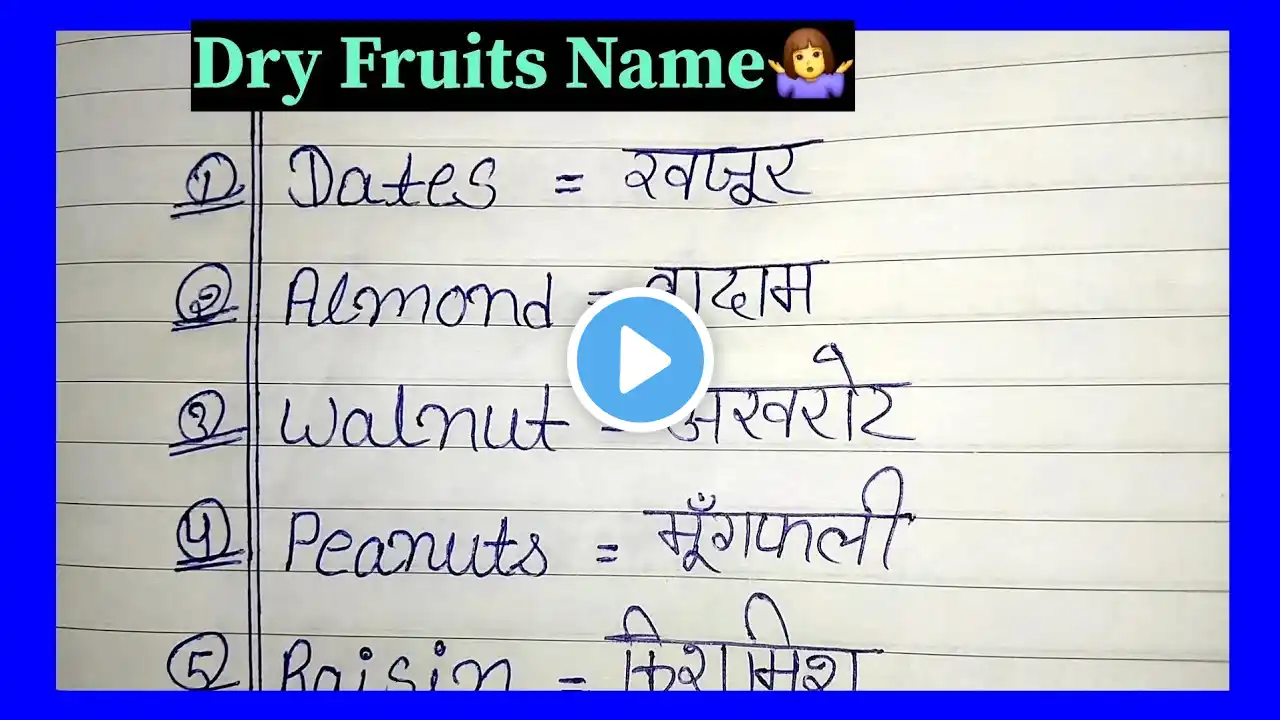 Dry Fruits Name🤷‍♀️
① Dates = खजूर
② Almond = बादाम
③ Walnut = अखरोट
④ Peanuts = मूँगफली
⑤ Raisin = किशमिश